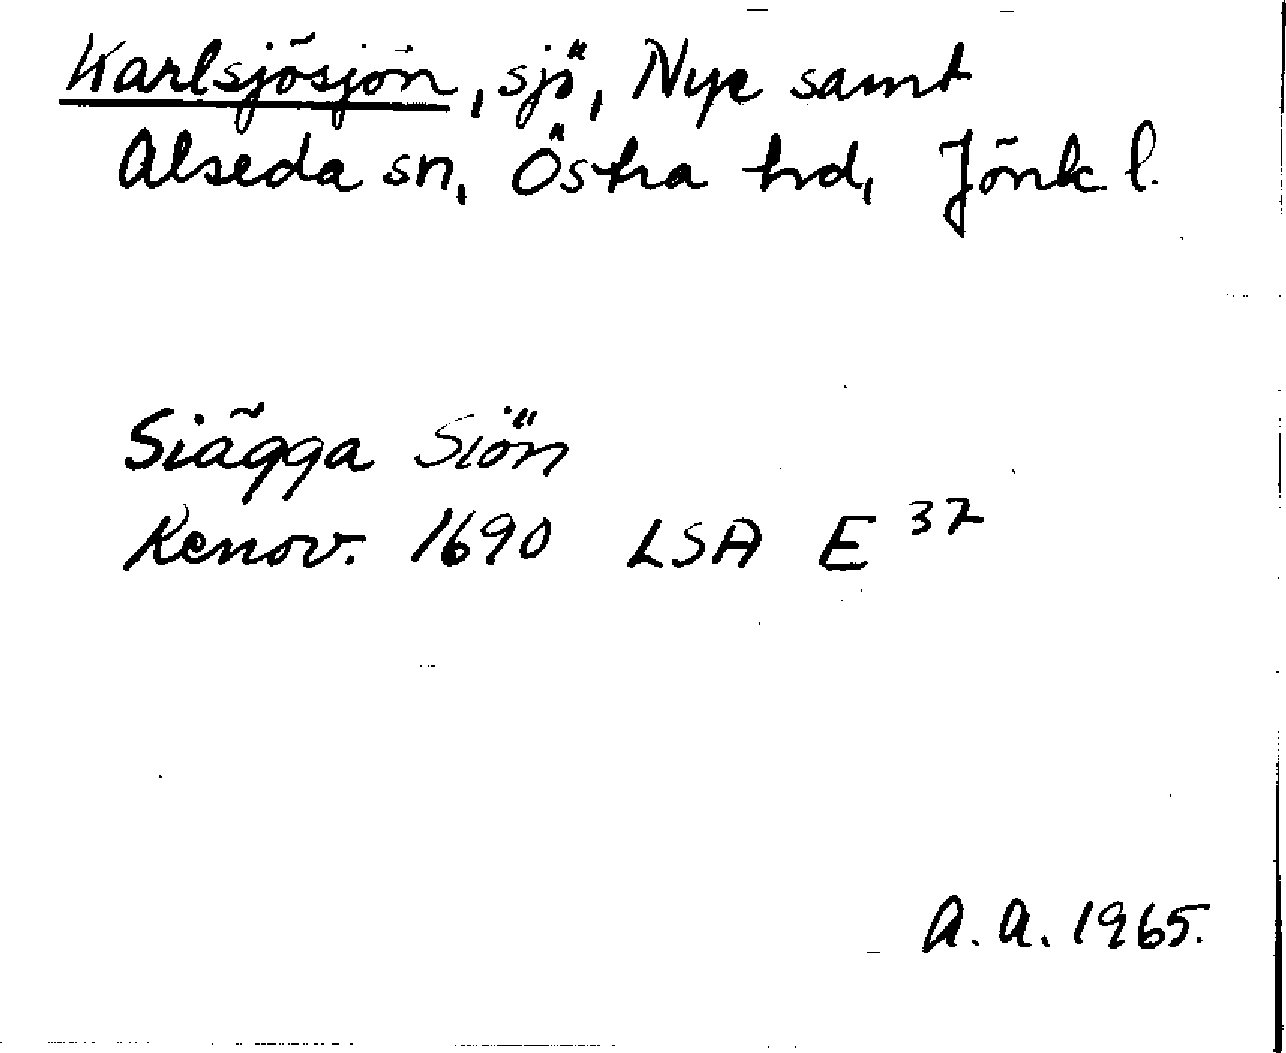 Karlsjösjön, sjö, Nye samt
Alseda sn, Östra hd, Jönk. l.
Siägga Siön
Renov. 1690 LSA E 37
A. A. 1965.